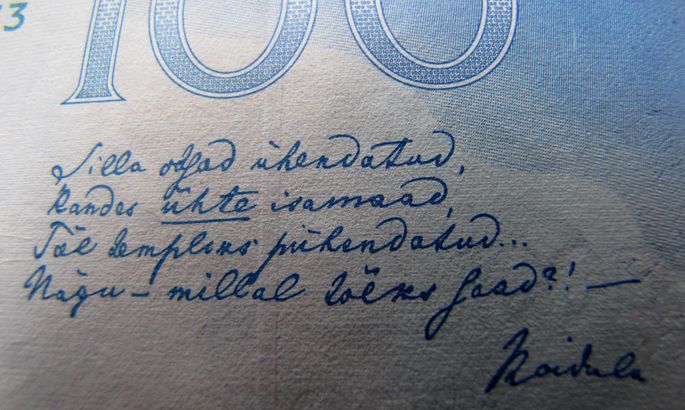 3
100
Silla otsad ühendatud,
Kandes ühte isamaad,
Tõl templiks pühendatud...
Nägu – millal tõeks saad?! —
Koidula